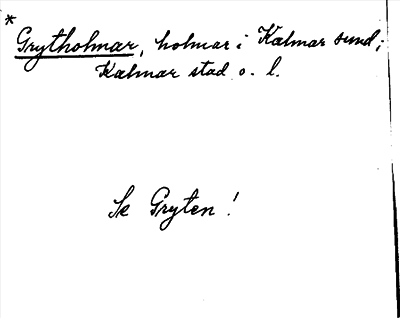 * Grytholmar, holmar i Kalmar sund;
Kalmar stad o. l.
Se Gryten!